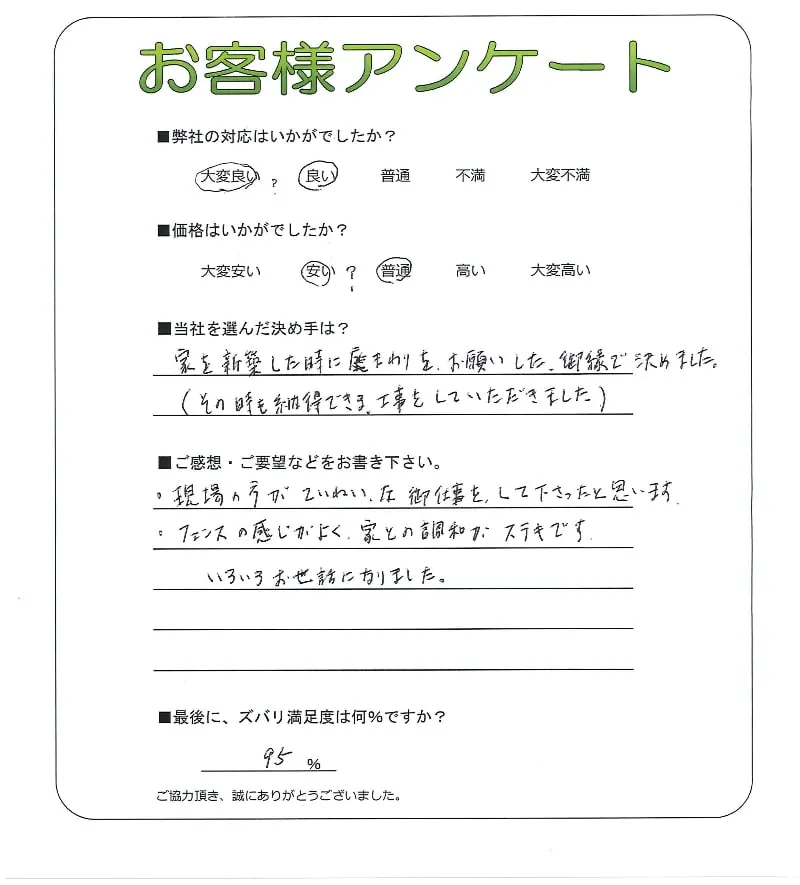 お客様アンケート
■弊社の対応はいかがでしたか?
大変良い ? 良い 普通 不満 大変不満
■価格はいかがでしたか?
大変安い 安い ? 普通 高い 大変高い
■当社を選んだ決め手は?
家を新築した時に庭まわりを、お願いした、御縁で決めました。
(その時も納得できる、工事をしていただきました)
■ご感想・ご要望などをお書き下さい。
・現場の方がていねいな御仕事を、して下さったと思います。
・フェンスの感じがよく、家との調和がステキです。
いろいろお世話になりました。
■最後に、ズバリ満足度は何%ですか?
95 %
ご協力頂き、誠にありがとうございました。